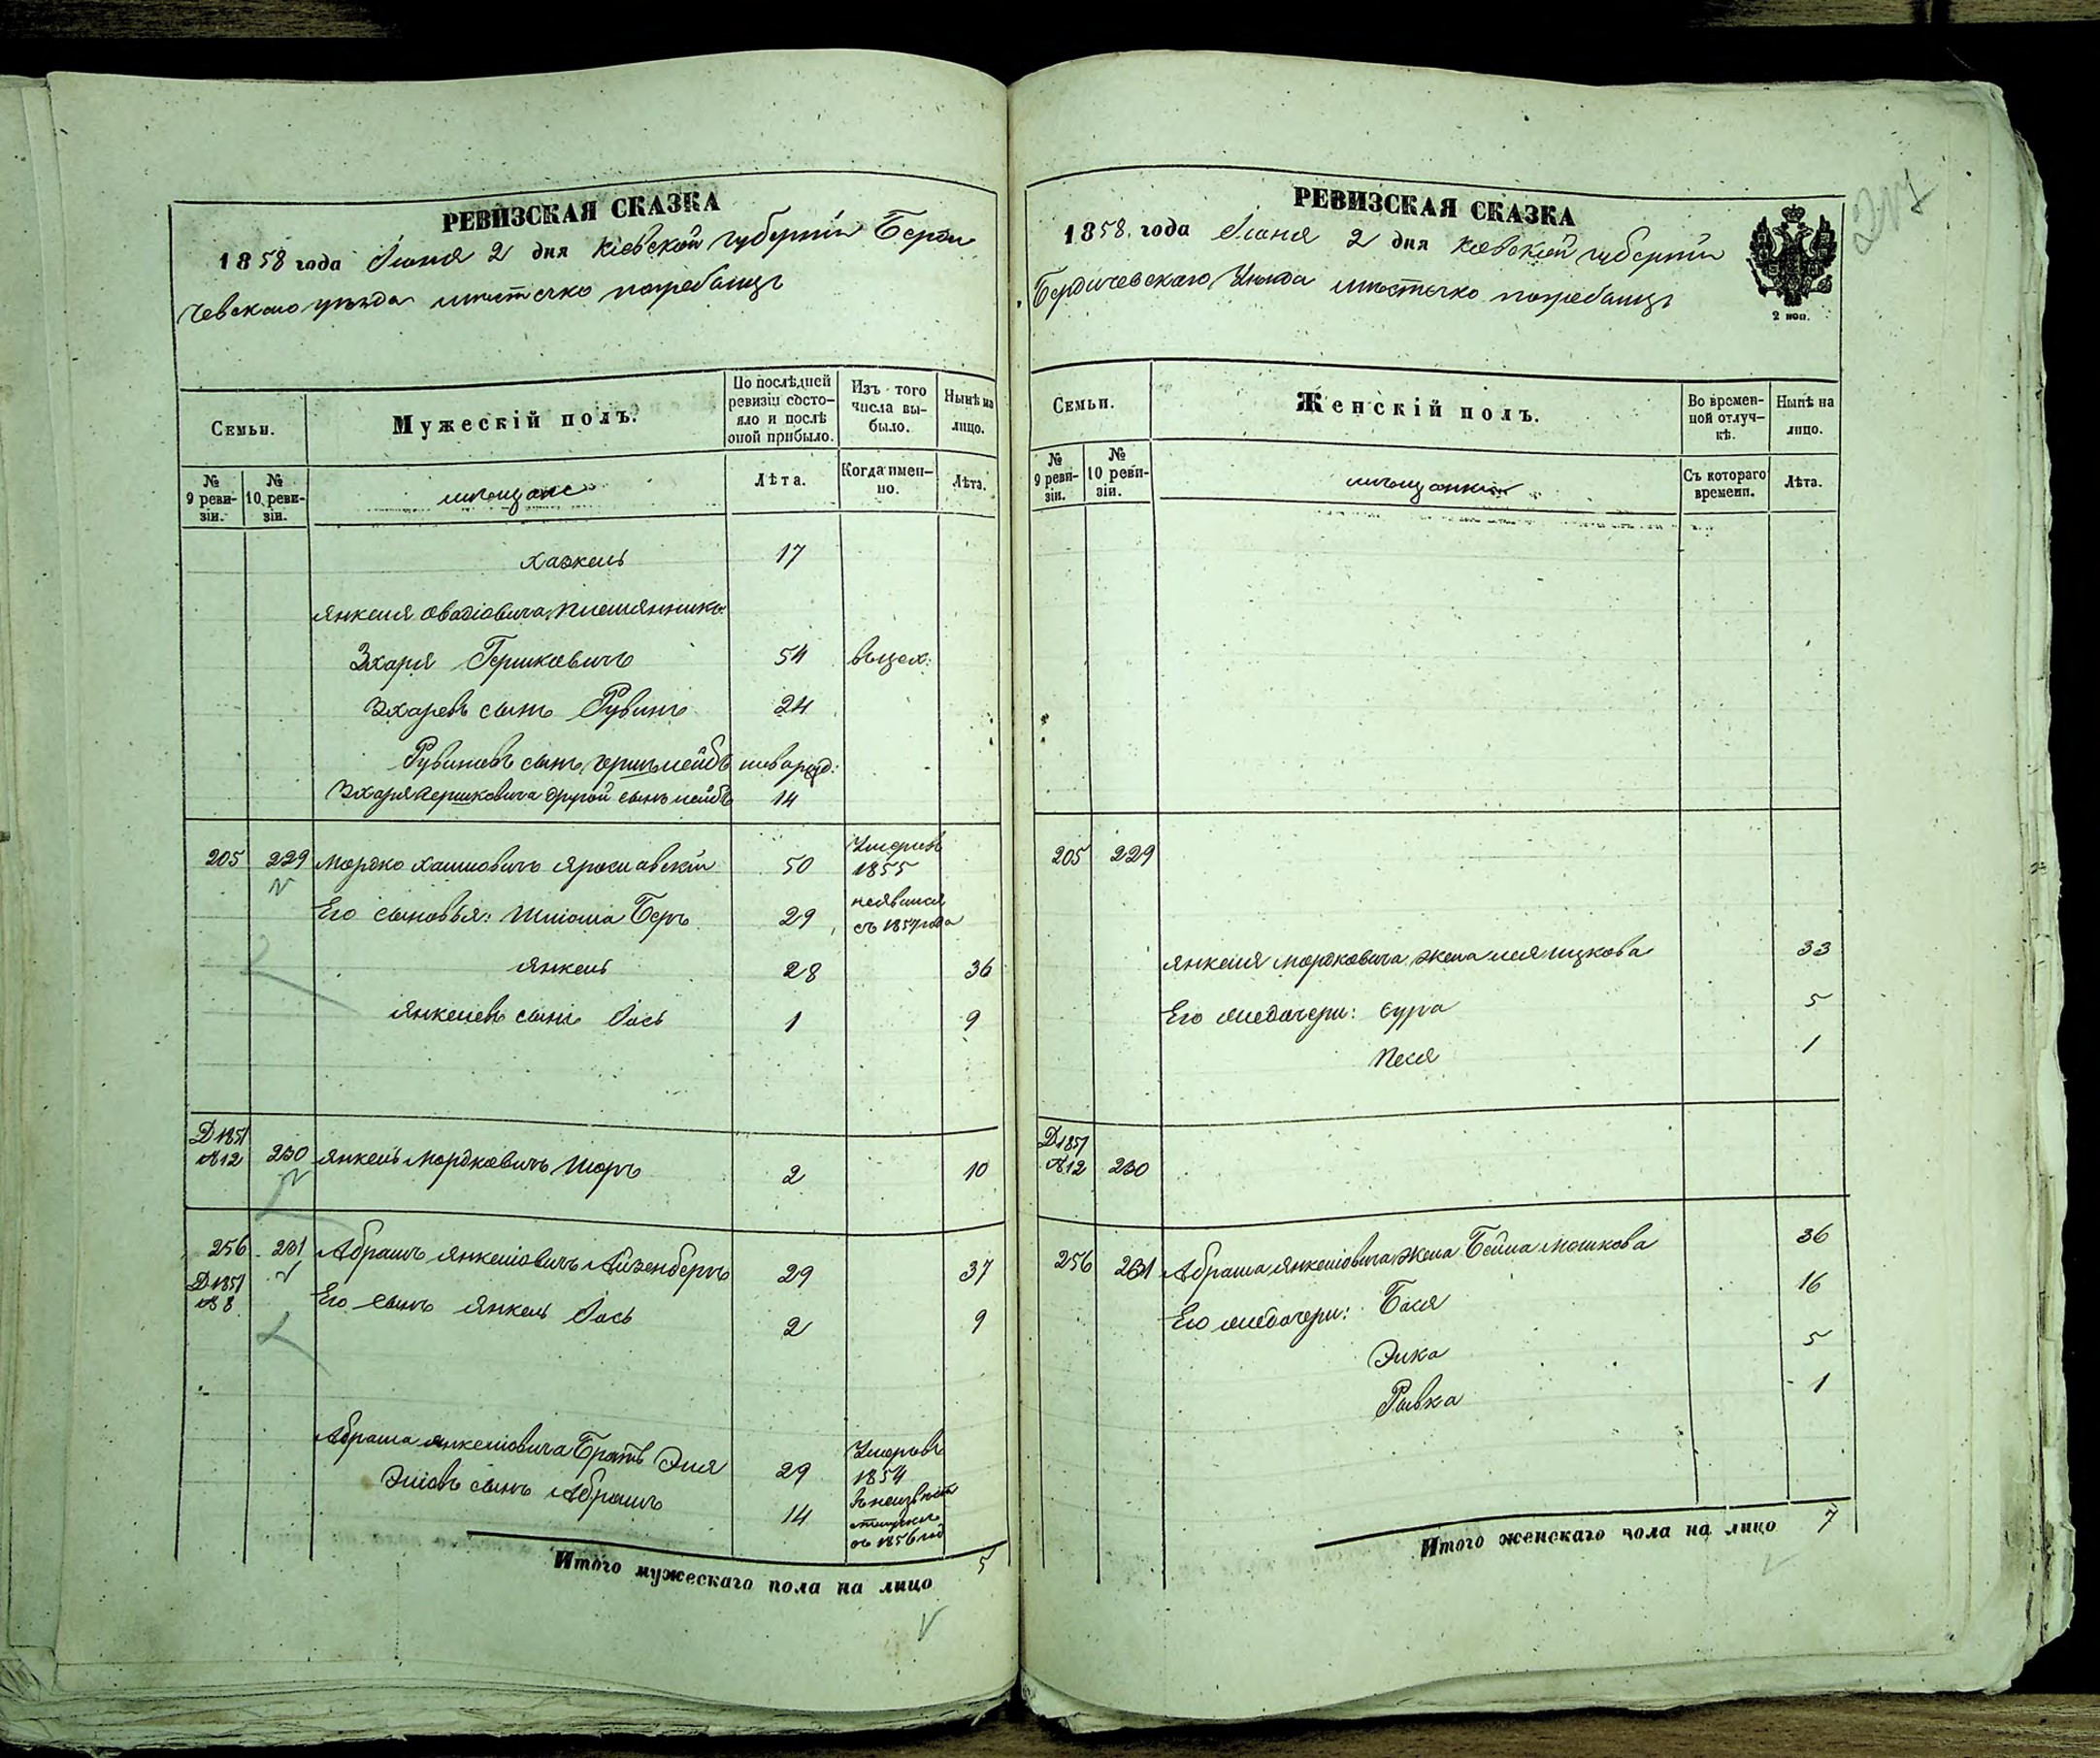 РЕВИЗСКАЯ СКАЗКА
1858 года Июня 2 дня Киевской губерніи Берди
чевскаго уѣзда мѣстечко погребищъ
Семьи.
Мужескій полъ.
По послѣдней ревизіи состояло и послѣ оной прибыло.
Изъ того числа выбыло.
Нынѣ на лицо.
№ 9 ревизіи.
№ 10 ревизіи.
мѣщане
Лѣта.
Когда именно.
Лѣта.
Хаскель 17
Янкеля Овадіовича племянники
Зхаря Гершковичъ 54
Зхаревъ сынъ Рувинъ 24
Рувиновъ сынъ Гершълейбъ новорожд:
Зхаря Гершковича другой сынъ лейбъ 14
205 229 Мордко Хаимовичъ Ярославскій 50 Умеръ 1855
Его сыновья: Шлиома Беръ 29 неявился съ 1857 года
Янкель 28 36
Янкелевъ сынъ Іось 1 9
Д 1851 №12 230 Янкель Мордковичъ Шоръ 2 10
256 231 Абрамъ Янкеліовичъ Айзенбергъ 29 37
Д 1851 № 8 Его сынъ Янкель Іось 2 9
Абрама Янкеліовича Братъ Эля 29 Умеръ 1854
Эліовъ сынъ Абрамъ 14 съ 1856 год
Итого мужескаго пола на лицо 5
РЕВИЗСКАЯ СКАЗКА
1858 года Июня 2 дня Киевской губерніи
Бердичевскаго Уѣзда мѣстечко погребищъ
2 коп.
Семьи.
Женскій полъ.
Во временной отлучкѣ.
Нынѣ на лицо.
№ 9 ревизіи.
№ 10 ревизіи.
мѣщанки
Съ котораго времени.
Лѣта.
205 229
Янкеля Мордковича жена Лея Ицкова 33
Его дочери: Сура 5
Песя 1
Д 1851 №12 230
256 231 Абрама Янкеліовича жена Бейла Мошкова 36
Его дочери: Бася 16
Элка 5
Рывка 1
Итого женскаго пола на лицо 7